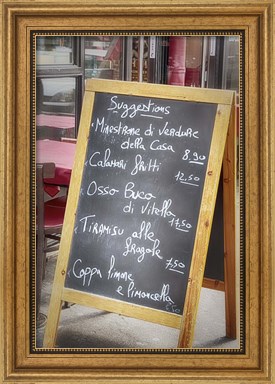 Suggestions
Minestrone di verdure
della Casa
8,90
Calamari fritti
12,50
Osso Buco
di Vitello
17,50
Tiramisu alle
fragole
7,50
Coppa limone
e limoncello